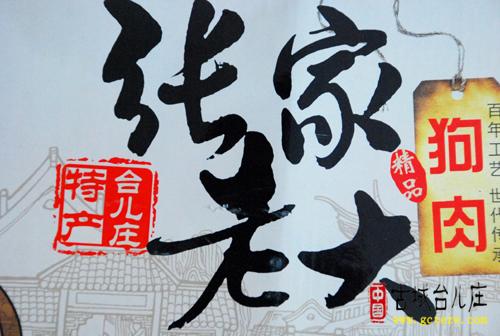 张家
老大
台儿庄
特产
精品
狗肉
百年工艺 世代传承
中國 古城台儿庄